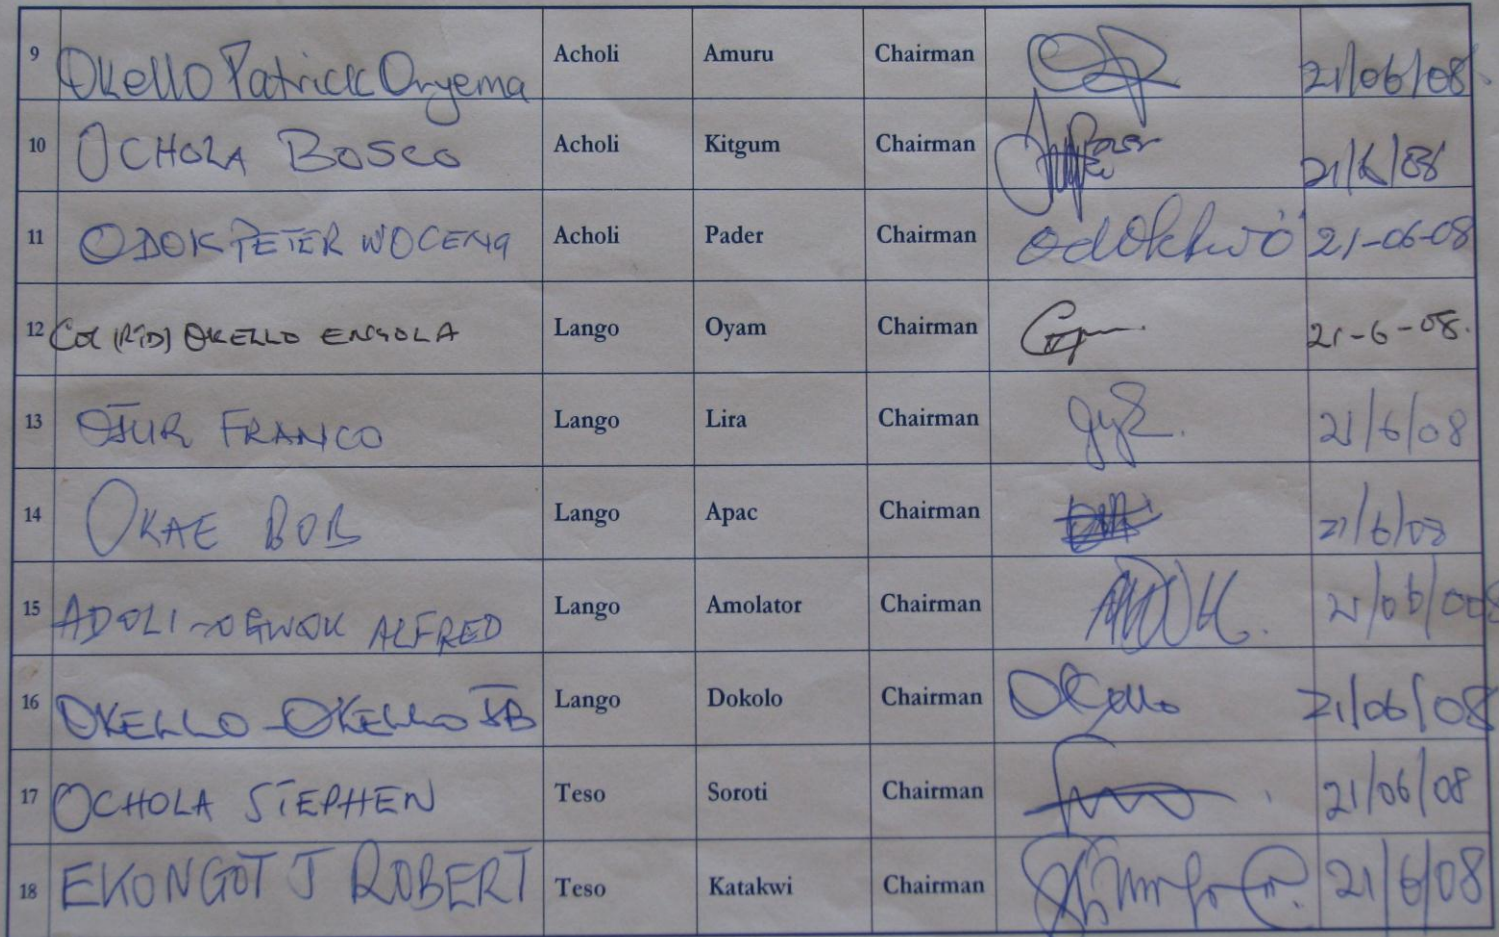 9 Okello Patrick Oryema Acholi Amuru Chairman 21/06/08
10 OCHOLA BOSCO Acholi Kitgum Chairman 21/6/08
11 ODOK PETER WOCENG Acholi Pader Chairman 21-06-08
12 Col (RTD) OKELLO ENGOLA Lango Oyam Chairman 21-6-08.
13 OJUR FRANCO Lango Lira Chairman 21/6/08
14 OKAE BOB Lango Apac Chairman 21/6/08
15 ADOLI-OGWOK ALFRED Lango Amolator Chairman 21/06/008
16 OKELLO-OKELLO JB Lango Dokolo Chairman Okello 21/06/08
17 OCHOLA STEPHEN Teso Soroti Chairman 21/06/08
18 EKONGOT J ROBERT Teso Katakwi Chairman 21/6/08